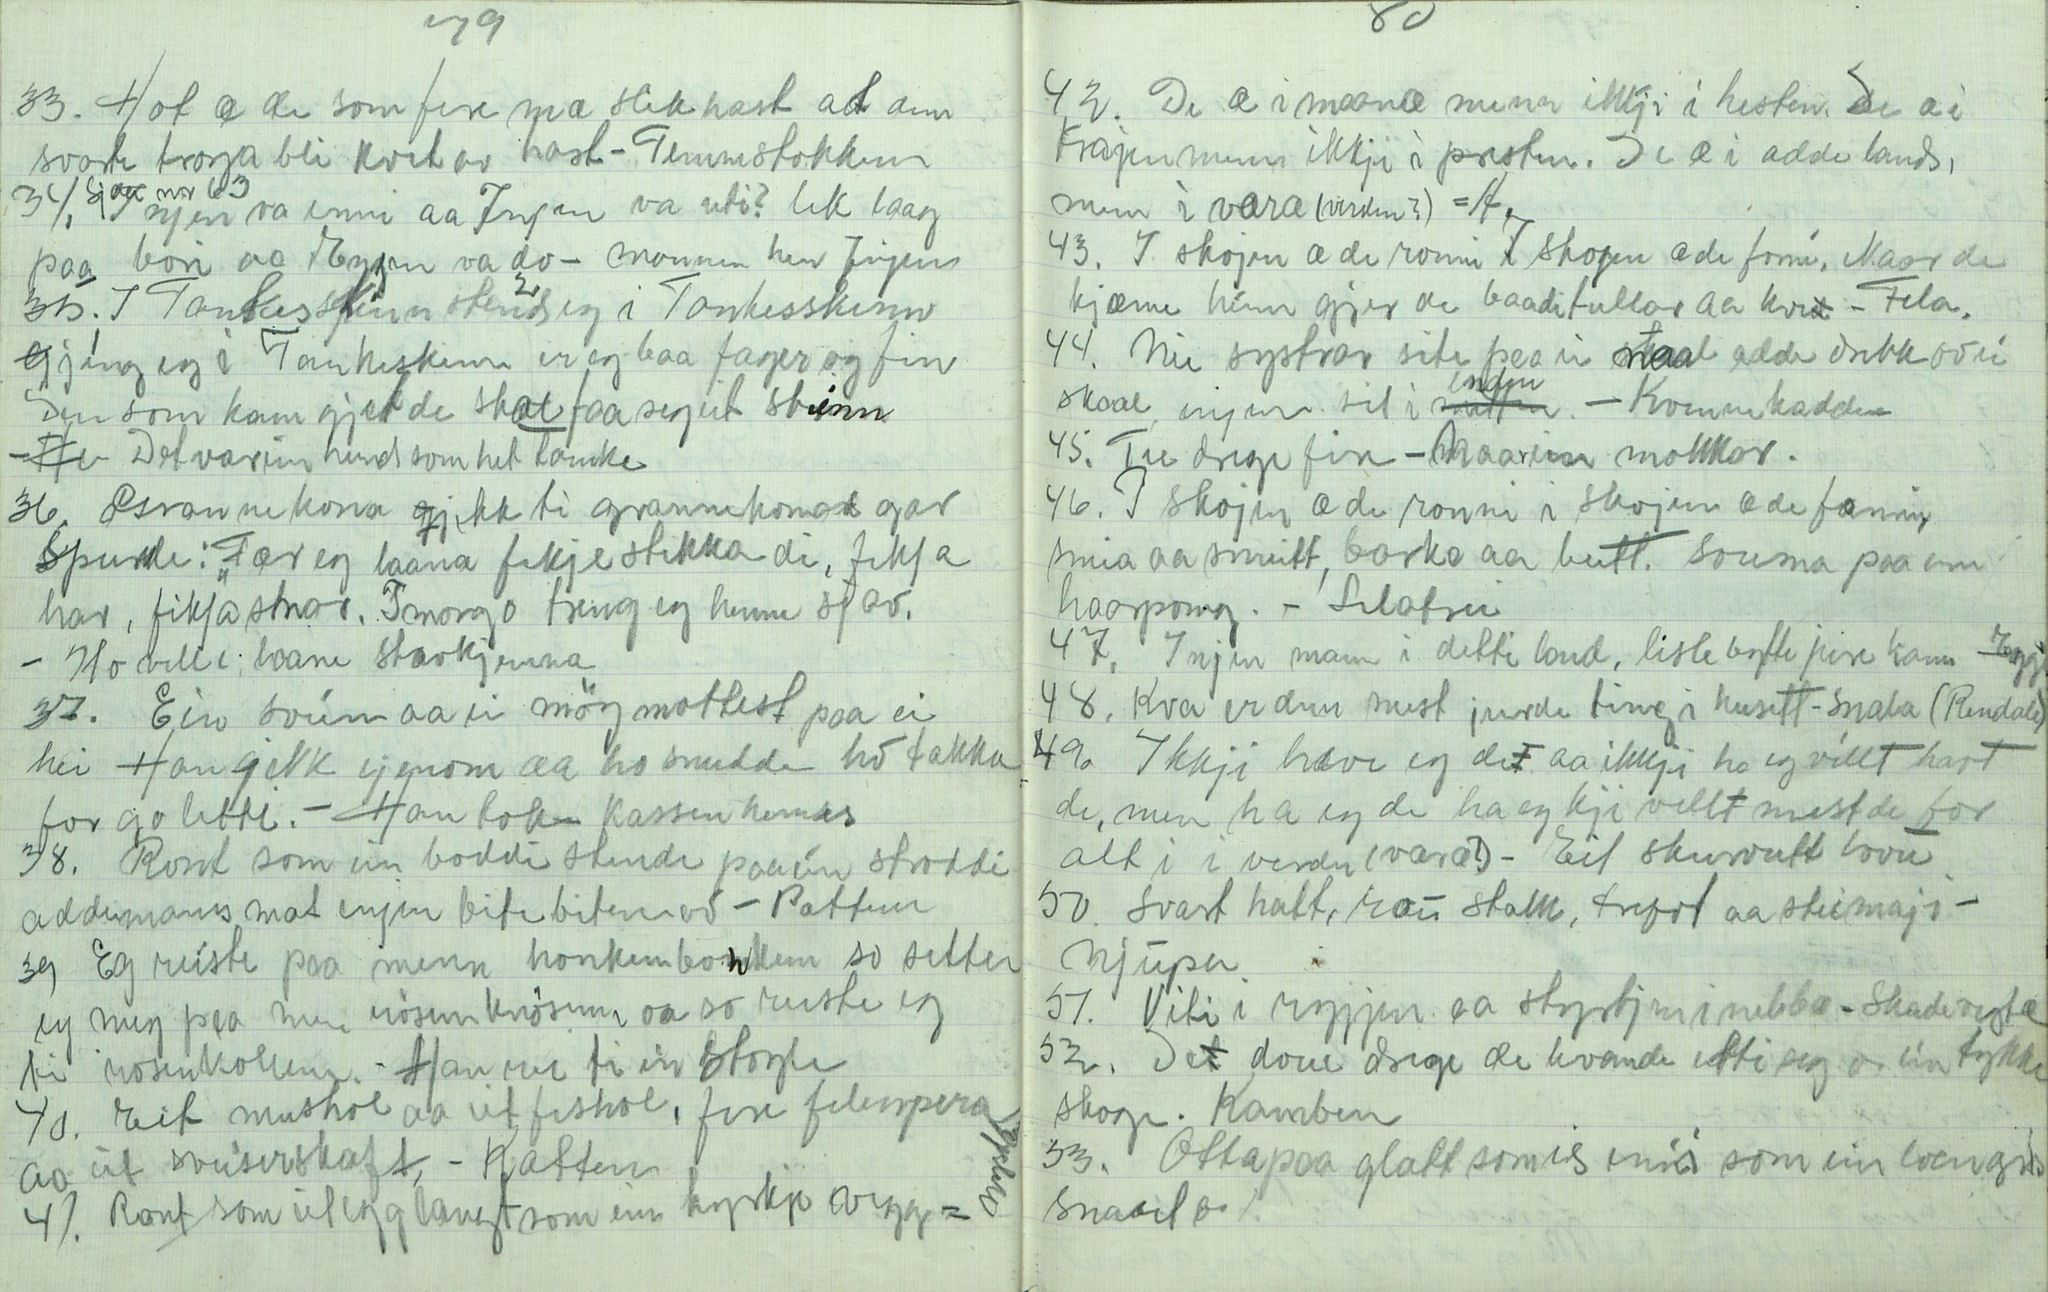 79
33. Hot æ de som fere mæ slik hast at den
svarte troya bli kvit av hast - Tennestokken
34. Sjaa nr 63 Injen va inni aa Injen va uti? lik laag
paa bori aa Injen va do - mannen hen Injen
35. I Tankesskinn stend eg i Tankesskinn
gjeng eg i Tankeskinn er eg baa fager og fin
Den som kann gjet de skal faa seg eit stenn
- Det var ein hund som het Tanke
36. Grannekona gjekk ti grannekonas gar
Spurde: "Fær eg laana fikje stikka di, fikja
har, fikja snar. I morgo treng eg henne sjøv.
- Ho ville laane stavkjenna
37. Ein svein aa ei möy mottest paa ei
hei Han gjekk igjenom aa ho snudde ho takka
for go letti. - Han loke kassen hennes
38. Ront som ein boddi stende paa ein stoddi
addemanns mat injen bite biten ov - Patten
39 Eg reiste paa menn honkenbonken so setter
eg meg paa men rosenknosenn, aa so reiste eg
ti rosenkollen. - Han rei ti ei Stoyle
40. Eit mushol aa eit fishol, fire filespera
aa eit sveiserskaft, - Katten
41. Ront som eit egg langt som ein kyrkje vegg =
80
42. De æ i maanæ menn ikkji i hesten. De æ i
Krajen menn ikkji i presten. De æ i adde lands,
menn i væra (verden?) = A.
43. I skojen æ de ronni I skogen æ de fonni. Naar de
kjæme heim gjer de baadi tullar aa kvi - Fela.
44. Nie systrar site paa ei staal adde drikk ov ei
skaal, injen sit i enden - Konnekadden
45. Tie drege fire - Naar ein molkkar.
46. I skojen æ de ronni i skojen æ de fænni,
snia aa sneitt, borka aa beitt. Souma paa em
haarpong. - Selatrei
47. Injen mann i detti land, lisle bytte jire kann - Egg
48. Kva er den mest jurde ting i husett - Snala (Rendale)
49. Ikkji hæve eg det aa ikkji ha eg villt havt
de, men ha eg de ha eg kji villt mest de for
alt i i verdn (væræ?) - Eit skurvutt hovu
50. Svart hatt, rau stakk, trept aa steimaji -
Njuper
51. Viti i ryjjen aa styrbjen i nebbæ - Skadevegtæ
52. Det doue drege de levande etti seg o ein tykke
skoge. Kamben
53. Otta paa glatt som is inni som ein loen gris
Snælda